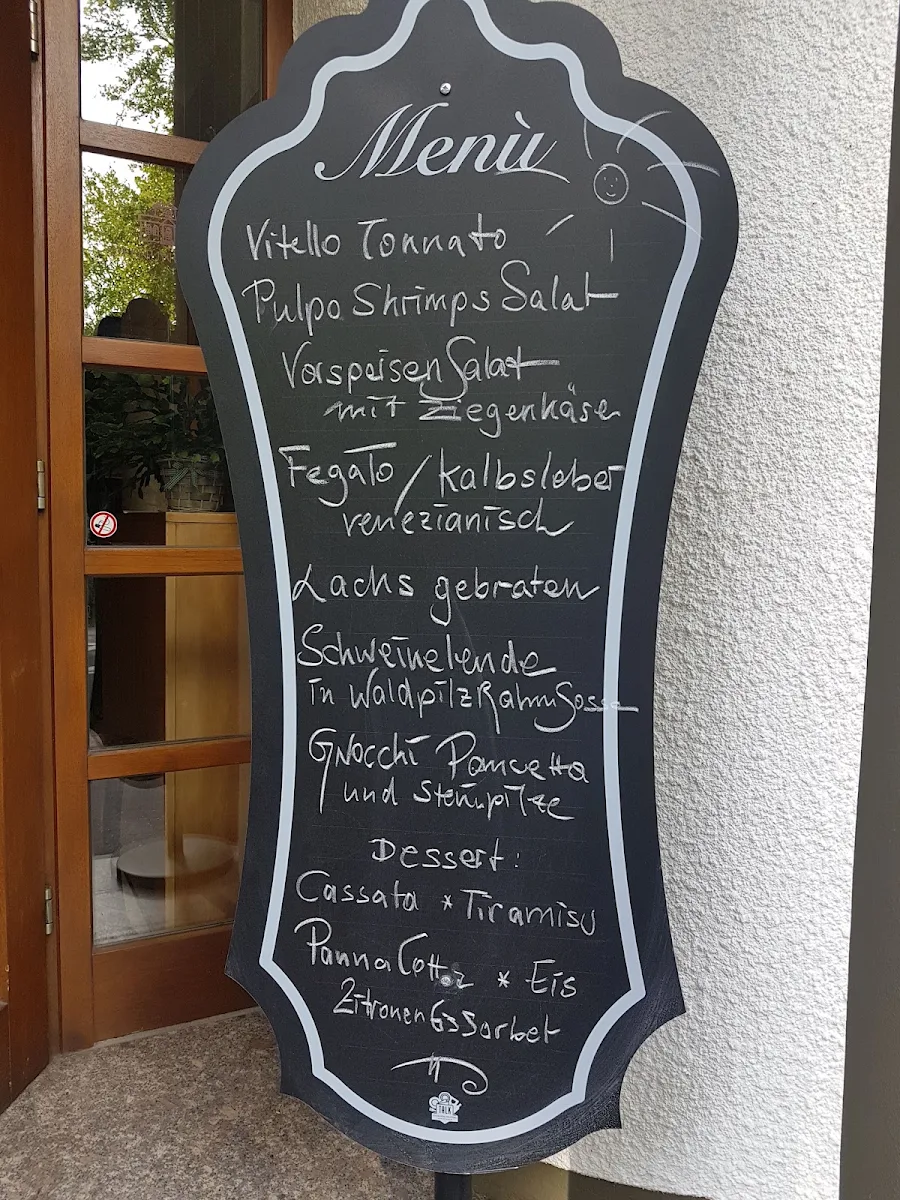 Menù
Vitello Tonnato
Pulpo Shrimps Salat
Vorspeisen Salat
mit Ziegenkäse
Fegato / Kalbsleber
venezianisch
Lachs gebraten
Schweinelende
in Waldpilz Rahm Sosse
Gnocchi Pancetta
und Steinpilze
Dessert:
Cassata * Tiramisu
Panna Cotta * Eis
Zitronen Eis Sorbet
TALK